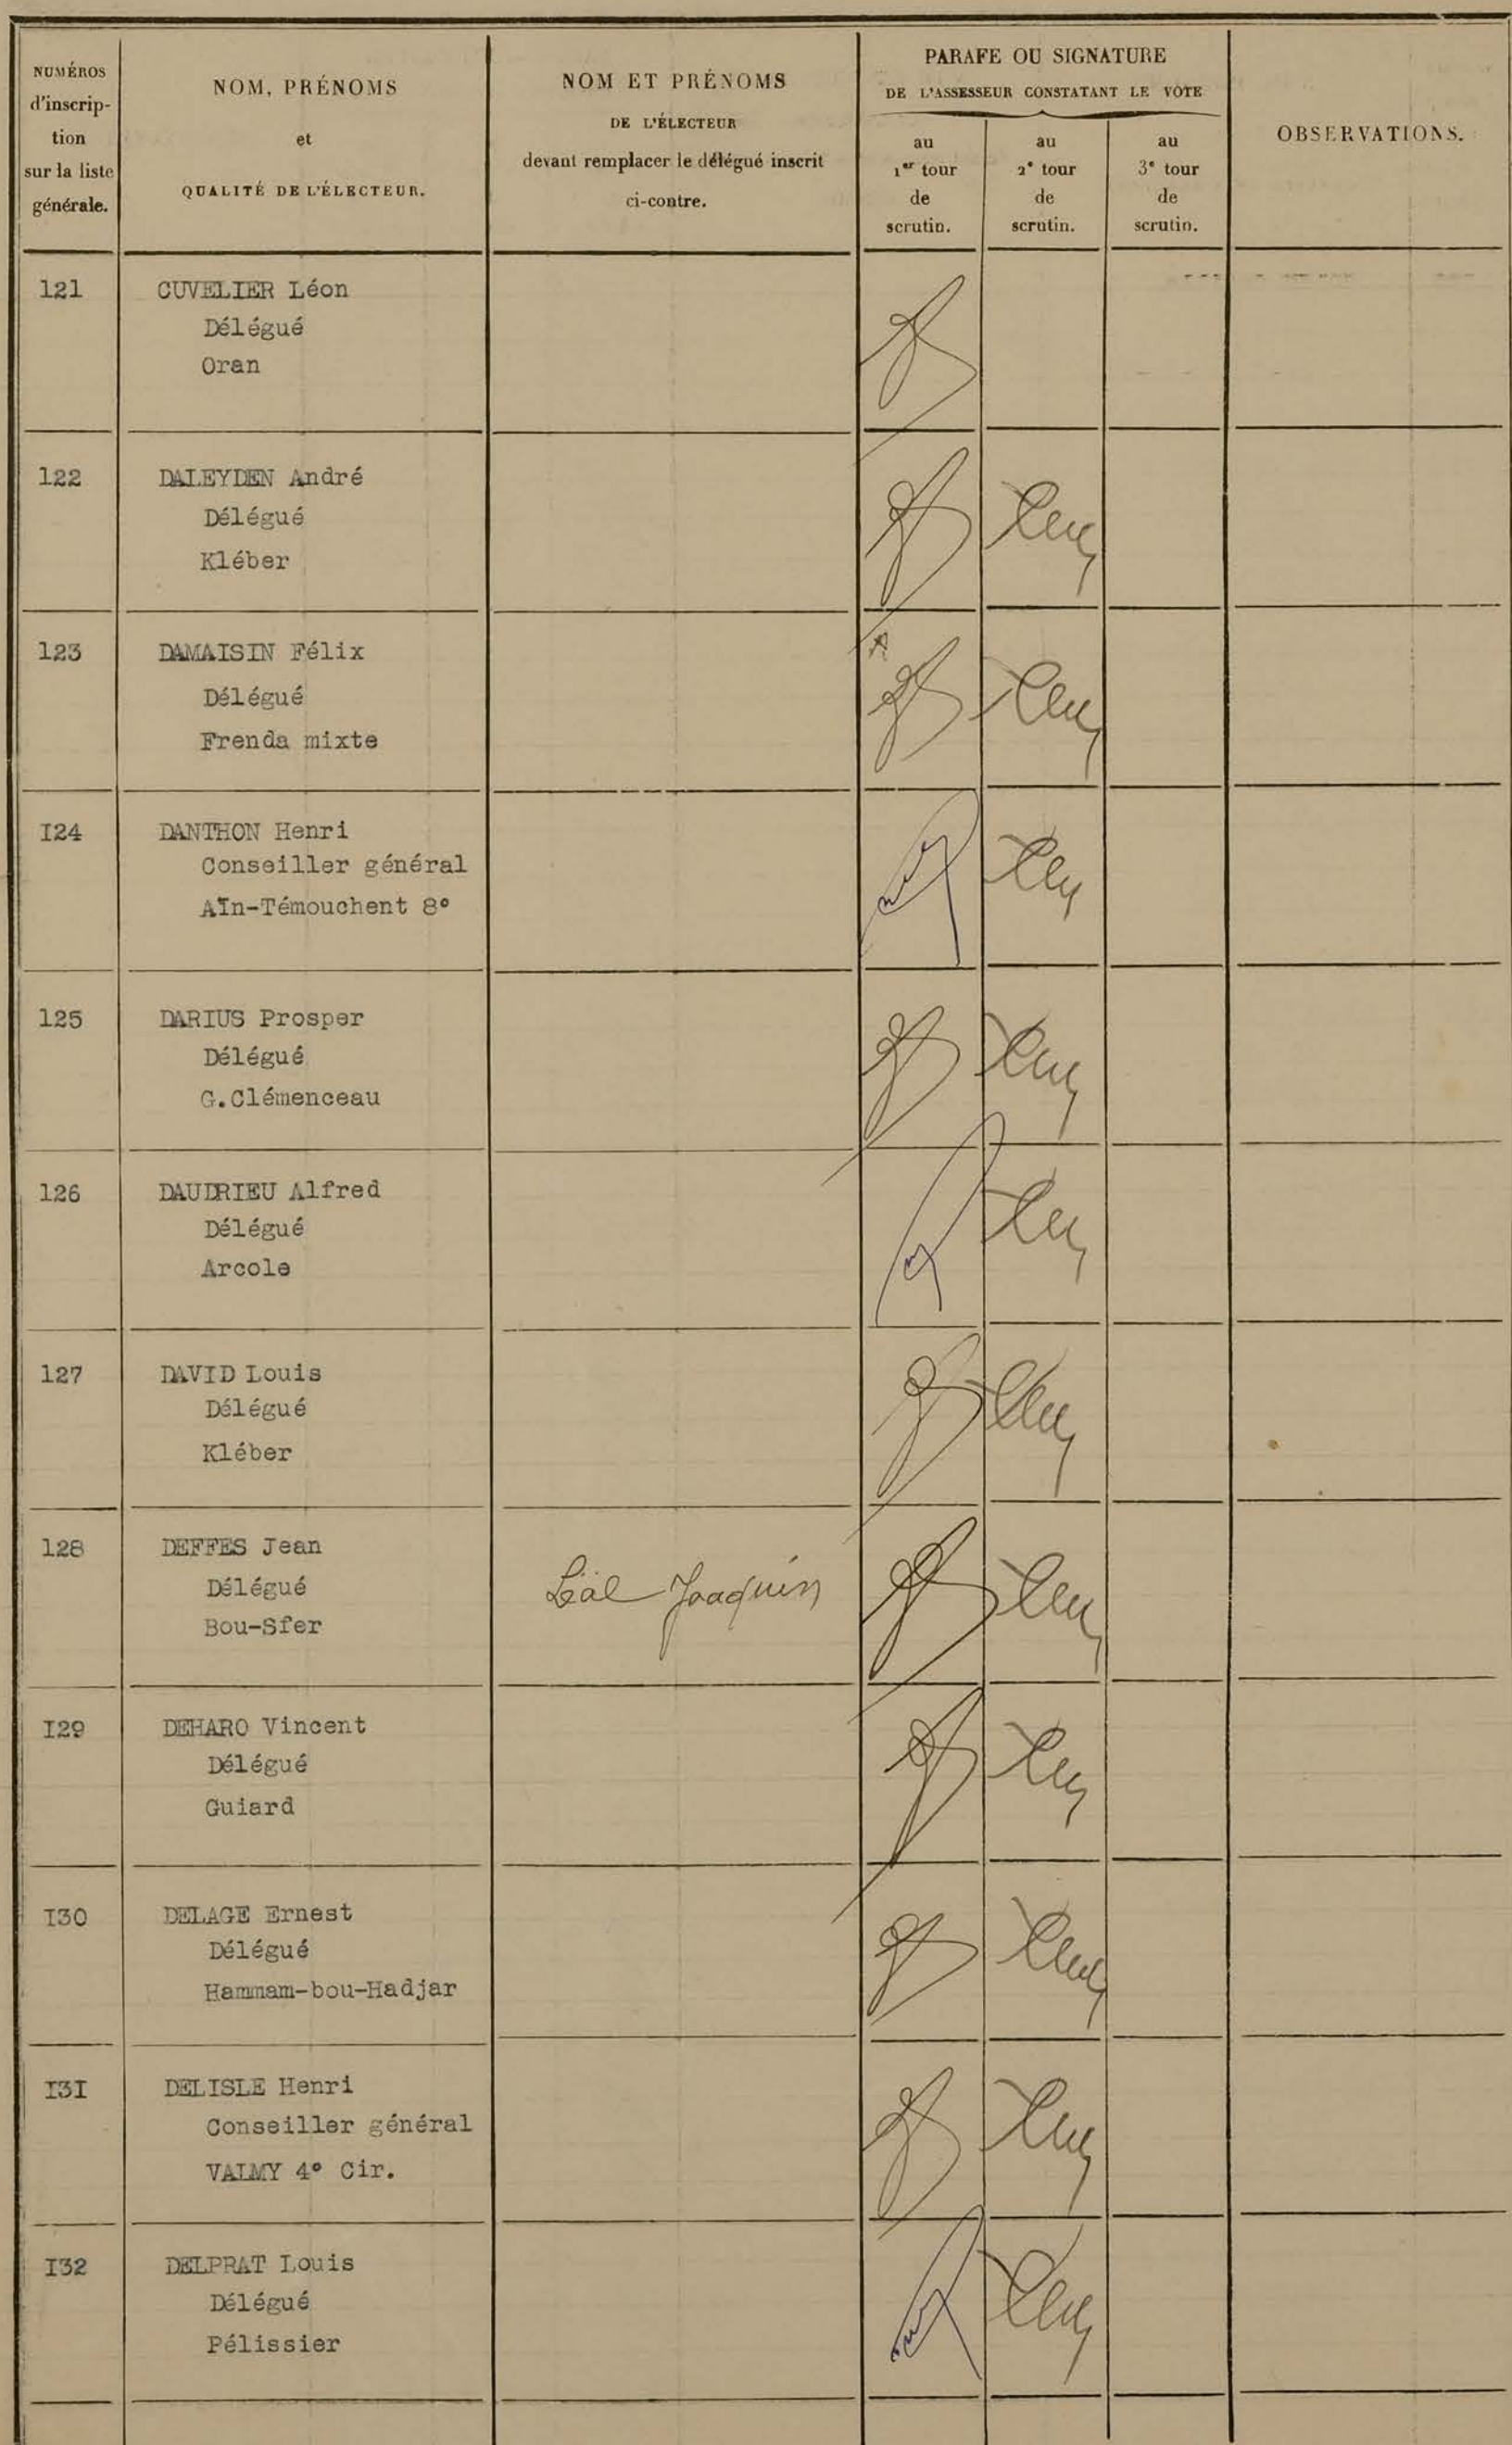 NUMÉROS
d'inscrip-
tion
sur la liste
générale.
NOM, PRÉNOMS
et
QUALITÉ DE L'ÉLECTEUR.
NOM ET PRÉNOMS
DE L'ÉLECTEUR
devant remplacer le délégué inscrit
ci-contre.
PARAFE OU SIGNATURE
DE L'ASSESSEUR CONSTATANT LE VOTE
au
1er tour
de
scrutin.
au
2e tour
de
scrutin.
au
3e tour
de
scrutin.
OBSERVATIONS.
121 CUVELIER Léon
Délégué
Oran
122 DALEYDEN André
Délégué
Kléber
123 DAMAISIN Félix
Délégué
Frenda mixte
I24 DANTHON Henri
Conseiller général
Aïn-Témouchent 8°
125 DARIUS Prosper
Délégué
G.Clémenceau
126 DAUDRIEU Alfred
Délégué
Arcole
127 DAVID Louis
Délégué
Kléber
128 DEFFES Jean
Délégué
Bou-Sfer
Léal Joaquin
I29 DEHARO Vincent
Délégué
Guiard
I30 DELAGE Ernest
Délégué
Hammam-bou-Hadjar
I3I DELISLE Henri
Conseiller général
VALMY 4° Cir.
I32 DELPRAT Louis
Délégué
Pélissier